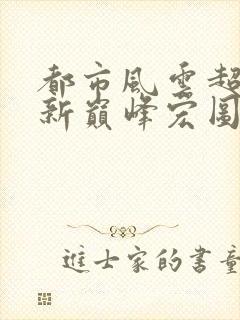 都市風雲超
新巔峰宏圖
進士家的書童